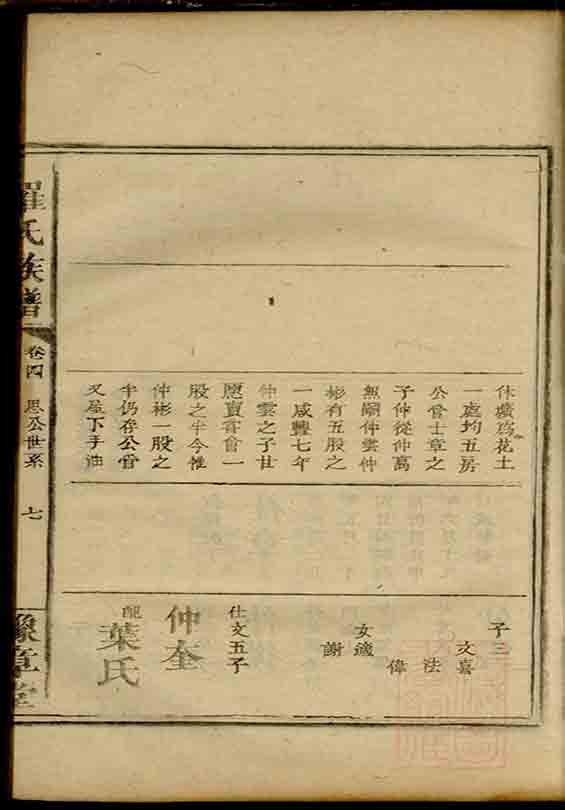 休廣爲花土
一處均五房
公管士章之
子仲從仲萬
無嗣仲雲仲
彬有五股之
一咸豐七年
仲雲之子廿
應賣嘗會一
股之半今惟
仲彬一股之
半仍存公管
又屋下手油
子三
文喜
法
偉
女適
謝
仕文五子
仲奎
配葉氏
羅氏族譜
卷四
思公世系
七
豫章堂